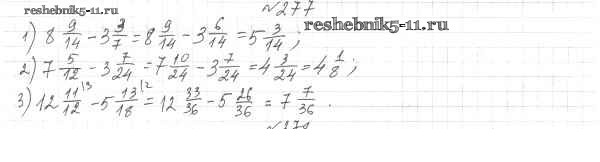 reshebnik5-11.ru
№277
reshebnik5-11.ru
1) 8 9/14 - 3 3/7 = 8 9/14 - 3 6/14 = 5 3/14 ;
2) 7 5/12 - 3 7/24 = 7 10/24 - 3 7/24 = 4 3/24 = 4 1/8 ;
3) 12 11/12 |3 - 5 13/18 |2 = 12 33/36 - 5 26/36 = 7 7/36 .